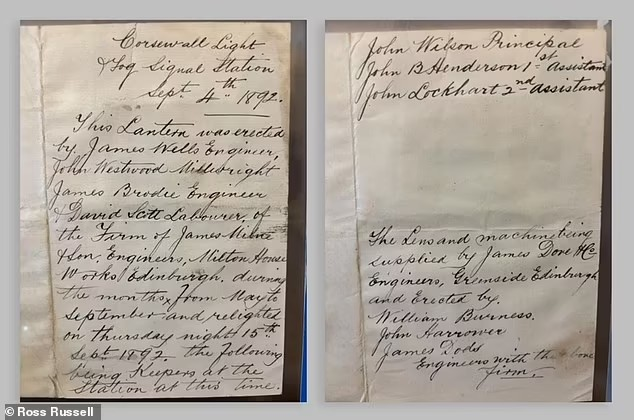 Corsewall Light
& Fog Signal Station
Sept. 4th 1892.
This Lantern was erected
by James Wells Engineer,
John Westwood Millwright
James Brodie Engineer
& David Scott Labourer, of
the Firm of James Milne
& Son, Engineers, Milton House
Works Edinburgh, during
the months, from May to
September and relighted
on thursday night 15th
Sept. 1892. the following
being Keepers at the
Station at this time.
John Wilson Principal
John B Henderson 1st assistant
John Lockhart 2nd assistant
The Lens and machine being
supplied by James Dove & Co
Engineers, Greenside Edinburgh
and Erected by.
William Burness.
John Harrower
James Dods
Engineers with the above
firm.
© Ross Russell